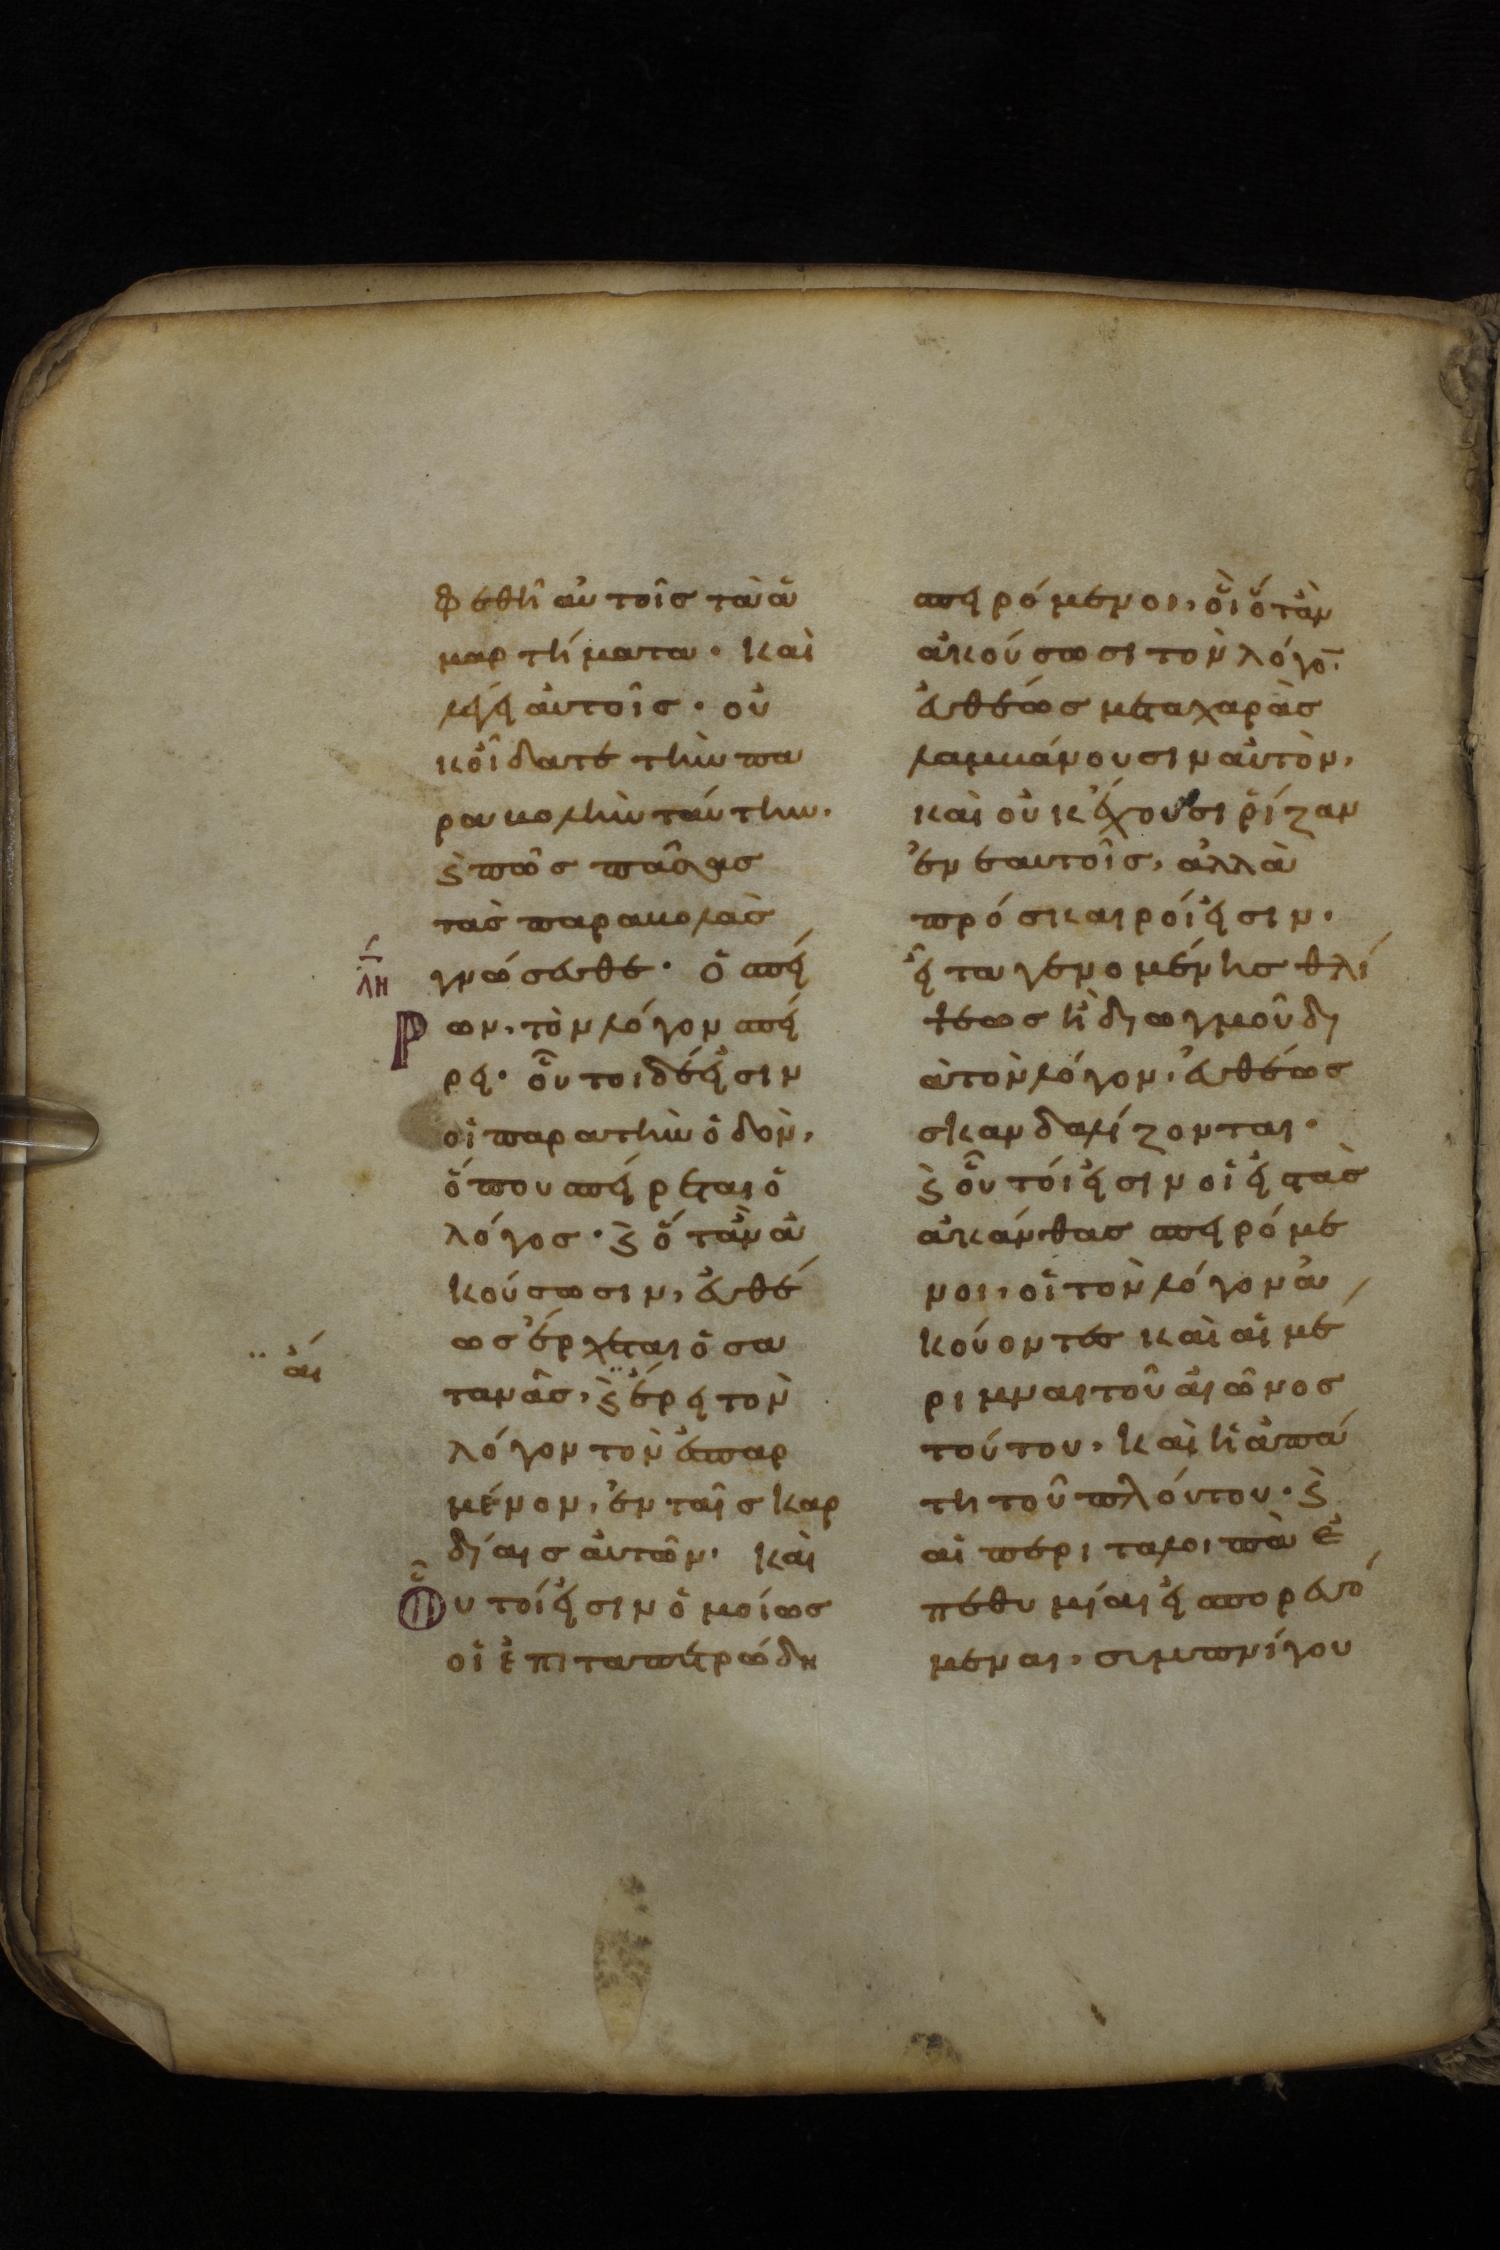 φεθῆ αὐτοῖς τὰ ἁ
μαρτήματα· καὶ
λέγει αὐτοῖς· οὐ
κ οἴδατε τὴν πα
ραβολὴν ταύτην·
ϗ πῶς πάσας
τὰς παραβολὰς
γνώσεσθε· ὁ σπεί
λη
ρων, τὸν λόγον σπεί
ρει· οὗτοι δέ εἰσιν
οἱ παρα τὴν ὁδὸν,
ὅπου σπείρεται ὁ
λόγος· ϗ ὅταν ἀ
κούσωσιν, εὐθέ
ως ἔρχεται ὁ σα
αἴ
τανᾶς, ϗ ἔρει τὸν
λόγον τὸν ἐσπαρ
μένον, ἐν ταῖς καρ
δίαις αὐτῶν· καὶ
οὗτοί εἰσιν ὁμοίως
οἱ ἐπι τα πετρώδη
σπειρόμενοι, οἳ ὅταν
ἀκούσωσι τὸν λόγο̅·
εὐθέως μετα χαρὰς
λαμβάνουσιν αὐτὸν,
καὶ οὐκ ἔχουσι ῥίζαν
ἐν εαυτοῖς, ἀλλὰ
πρόσκαιροί εἰσιν·
εἶτα γενομένης θλί
ψεως ἢ διωγμοῦ δι
ὰ τὸν λόγον, εὐθέως
σκανδαλίζονται·
ϗ οὗτοί εἰσιν οἱ εἰς τὰς
ἀκάνθας σπειρόμε
νοι, οἱ τὸν λόγον ἀ
κούοντες καὶ αἱ μέ
ριμναι τοῦ αἰῶνος
τούτου, καὶ ἡ ἀπά
τη τοῦ πλούτου· ϗ
αἱ περι τα λοιπὰ ἐ
πιθυμίαι εἰσπορευό
μεναι, συμπνίγου